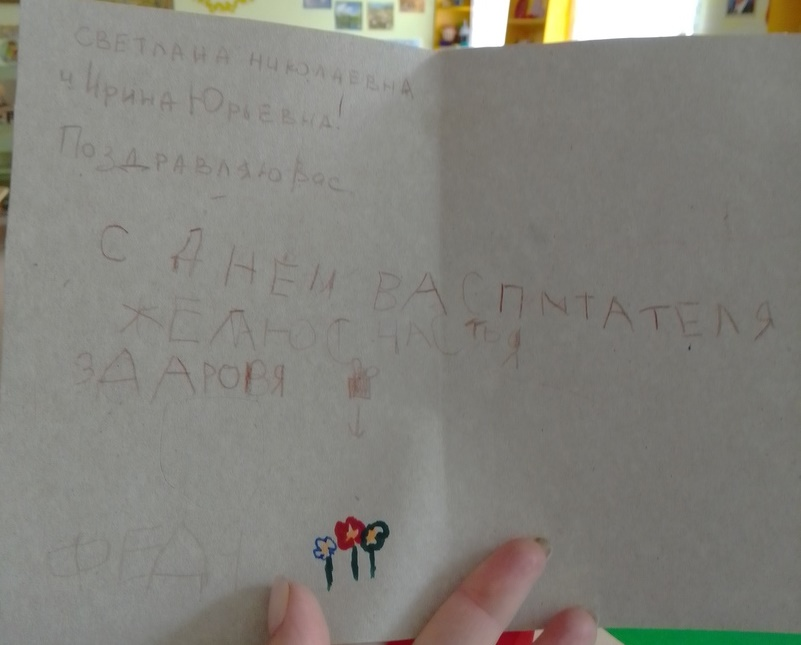 СВЕТЛАНА НИКОЛАЕВНА
и Ирина Юрьевна!
Поздравляю Вас
С ДНЁМ ВАСПИТАТЕЛЯ
ЖЕЛАЮ СЧАСТЬЯ
ЗДАРОВЯ
ФЕДЯ